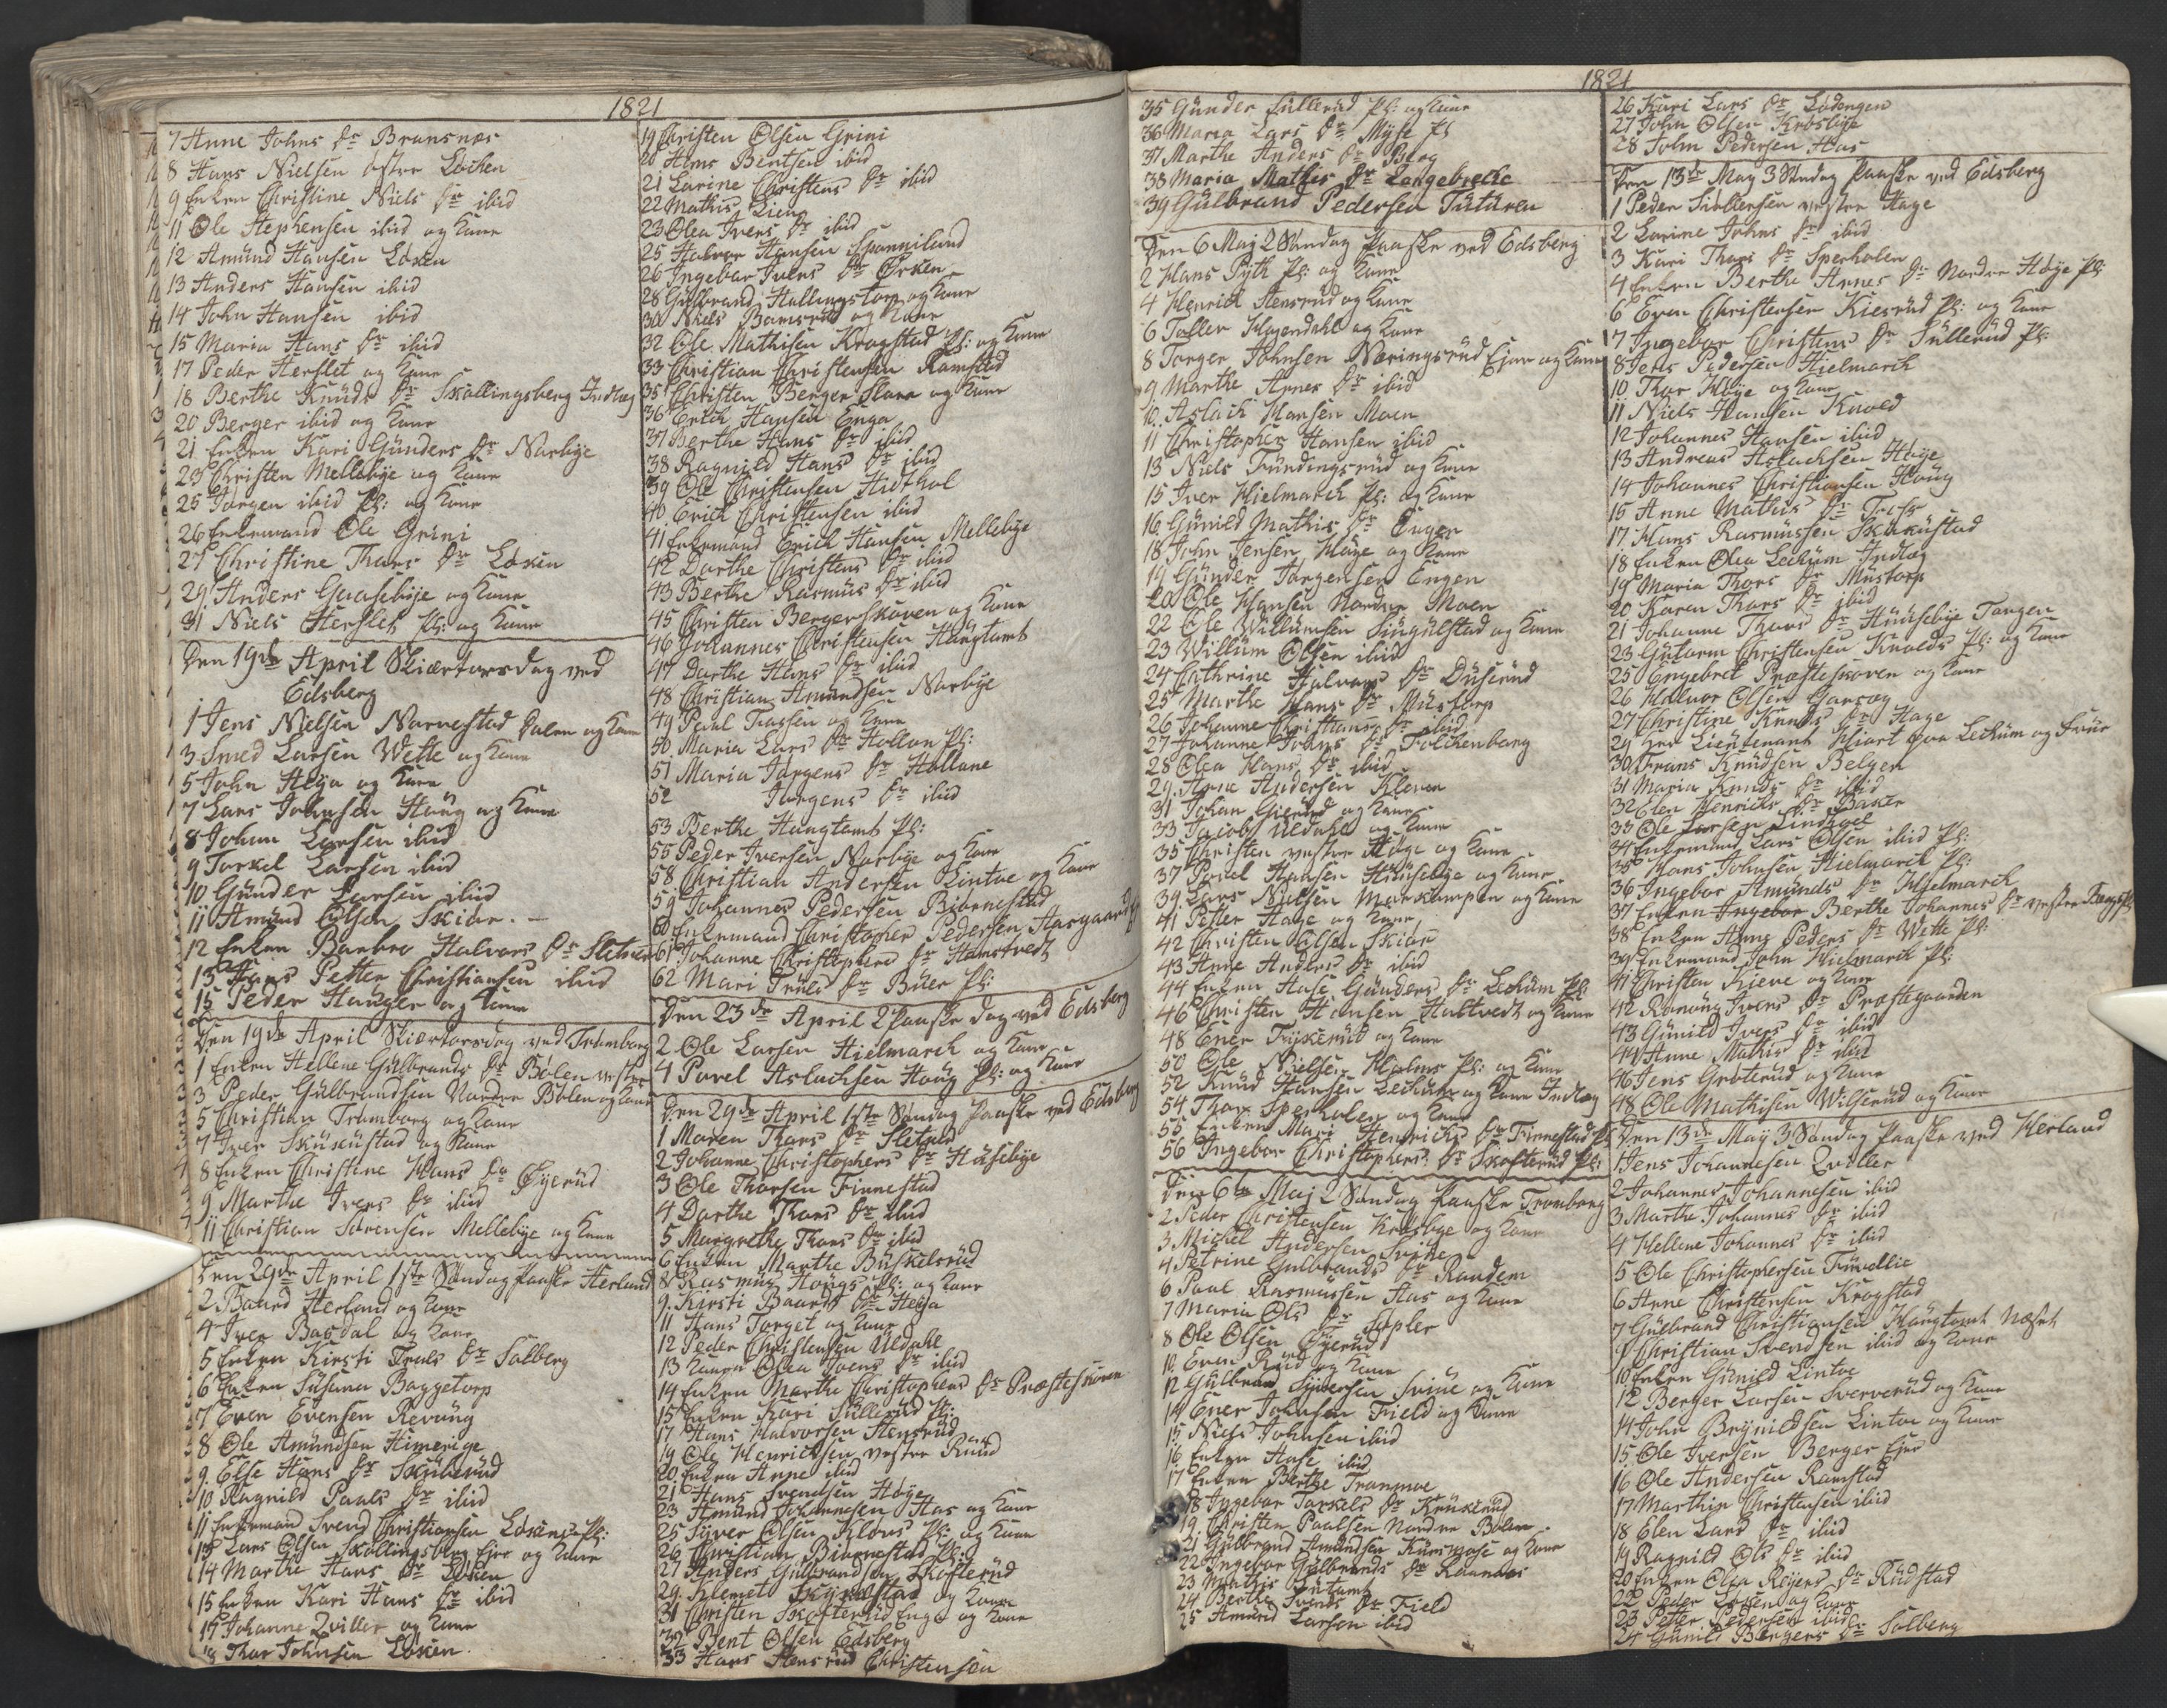 1821
7 Anne Johns Dr Bransnes
8 Hans Nielsen østre Løchen
9 Enken Christine Niels Dr ibid
11 Ole Stephensen ibid og Kone
12 Amund Hansen Løken
13 Anders Hansen ibid
14 John Hansen ibid
15 Maria Hans Dr ibid
17 Peder Herslet og Kone
18 Berthe Knuds Dr Skallingsberg Indlæg
20 Berger ibid og Kone
21 Enken Kari Gunders Dr Narbye
23 Christen Mellebye og Kone
25 Jørgen ibid Pl: og Kone
26 Enkemand Ole Grini
27 Christine Thores Dr Løken
29 Anders Gaasebye og Kone
31 Niels Herslet Pl: og Kone
Den 19de April Skiærtorsdag ved
Edsberg
1 Jens Nielsen Narvestad og Kone
3 Smed Larsen Wette og Kone
5 John Heya og Kone
7 Lars Johnsen Haug og Kone
8 Johan Larsen ibid
9 Torkel Larsen ibid
10 Gunder Larsen ibid
11 Amund Olsen Skiør
12 Enken Barbro Halvors Dr Sletner
13 Hans Petter Christiansen ibid
15 Peder Hauger og Kone
Den 19de April Skiærtorsdag ved Trømborg
1 Enken Hellene Gulbrands Dr Bølen vestre
3 Peder Gulbrandsen Nordre Bølen og Kone
5 Christian Trømborg og Kone
7 Iver Skukustad og Kone
8 Enken Christine Hans Dr Øyerud
9 Marthe Ivers Dr ibid
11 Christian Sørensen Mellebye og Kone
Den 29de April 1ste Søndag Paaske Herland
2 Baard Herland og Kone
4 Iver Basdal og Kone
5 Enken Kirsti Truls Dr Solberg
6 Enken Susana Baggetorp
7 Even Evensen Revaug
8 Ole Amundsen Himerige
9 Else Hans Dr Skulerud
10 Ragnild Pauls Dr ibid
11 Enkemand Svend Christiansen Løkens Pl:
13 Lars Olsen Skallingsberg Ejer og Kone
14 Marthe Hans Dr Løken
15 Enken Kari Hans Dr ibid
17 Johanne Zviller og Kone
18 Thor Johnsen Løken
19 Christen Olsen Grini
20 Hans Bentsen ibid
21 Larine Christens Dr ibid
22 Mathis Lien
23 Olea Ivers Dr ibid
25 Halvor Hansen Spanniland
26 Ingebor Ivers Dr Ørken
28 Gulbrand Hallingstorp og Kone
30 Niels Bamsrud og Kone
32 Ole Mathisen Kragstad Pl: og Kone
33 Christian Christensen Ramstad
35 Christen Berger Skare og Kone
36 Erich Hansen Enga
37 Berthe Hans Dr ibid
38 Ragnild Hans Dr ibid
39 Ole Christensen Hidthol
40 Erich Christensen ibid
41 Enkemand Erich Hansen Mellebye
42 Dorthe Christens Dr ibid
43 Berthe Rasmus Dr ibid
45 Christen Bergerskoven og Kone
46 Johannes Christensen Haugtomt
47 Dorthe Hans Dr ibid
48 Christian Amundsen Narbye
49 Paul Fossen og Kone
50 Maria Lars Dr Hollon Pl:
51 Maria Jørgens Dr Hollane
52 Jørgens Dr ibid
53 Berthe Haugtomt Pl:
55 Peder Iversen Narbye og Kone
58 Christian Andersen Lintoe og Kone
59 Johannes Pedersen Biørnestad
60 Enkemand Christopher Pedersen Aasgaard
61 Johanne Christophers Dr Hamtvedt
62 Mari Truls Dr Buer Pl:
Den 23de April 2 Paaske dag ved Edsberg
2 Ole Larsen Hielmarch og Kone
4 Povel Aslachsen Houg Pl: og Kone
Den 29de April 1ste Søndag Paaske ved Edsberg
1 Maren Thors Dr Sletner
2 Johanne Christophers Dr Husebye
3 Ole Thorsen Finnestad
4 Dorthe Thors Dr ibid
5 Margrethe Thors Dr ibid
6 Enken Marthe Buskelsrud
8 Rasmus Hougs Pl: og Kone
9 Kirsti Baards Dr Heya
11 Hans Torget og Kone
12 Peder Christensen Uldahl
13 Konen Olea Ivers Dr ibid
14 Enken Marthe Christophers Dr Præsteskoven
15 Enken Kari Sullerud Pl:
17 Hans Halvorsen Stensrud
19 Ole Henrichsen vestre Ruud
20 Enken Anne ibid
21 Hans Svendsen Høye
23 Amund Johannesen Has og Kone
25 Syver Olsen Kløvs Pl: og Kone
26 Christian Biørnestad Pl:
27 Anders Gulbrandsen Skofterud
29 Klemet Skyrkstad og Kone
31 Christen Skofterud Enge og Kone
32 Bent Olsen Edsberg
33 Hans Stensrud Christensen
1821
35 Gunder Sullerud Pl: og Kone
36 Maria Lars Dr Myse Pl
37 Marthe Anders Dr Berg
38 Maria Mathis Dr Langebrekke
39 Gulbrand Pedersen Tuturen
Den 6 May 2 Søndag Paaske ved Edsberg
2 Hans Pyth Pl: og Kone
4 Henrich Stensrud og Kone
6 Toller Hagendahl og Kone
8 Torger Johnsen Næringsrud Ejer og Kone
9 Marthe Arnes Dr ibid
10 Aslach Hansen Moen
11 Christopher Hansen ibid
13 Niels Fundingsrud og Kone
15 Iver Hielmarch Pl: og Kone
16 Gunild Mathis Dr Engen
18 John Jensen Høye og Kone
19 Gunder Jørgensen Engen
20 Ole Hansen Nordre Moen
22 Ole Willumsen Singulstad og Kone
23 Willum Olsen ibid
24 Cathrine Halvors Dr Duserud
25 Marthe Hans Dr Mustorp
26 Johanne Christians Dr ibid
27 Johanne Johns Dr Folchenborg
28 Olea Hans Dr ibid
29 Arne Andersen Kleven
31 Johan Gierud og Kone
33 Jacob Uldahl og Kone
35 Christen vestre Høye og Kone
37 Povel Hansen Huusebye og Kone
39 Lars Nielsen Markompen og Kone
41 Petter Hage og Kone
42 Christen Olsen Skiør
43 Anne Anders Dr ibid
44 Enken Aase Gunders Dr Lechum Pl:
46 Christen Hansen Haltvedt og Kone
48 Ener Fryserud og Kone
50 Ole Nielsen Holms Pl: og Kone
52 Knud Hansen Lechum og Kone Indlæg
54 Thor Sperholen og Kone
55 Enken Mari Henrichs Dr Finnestad Pl
56 Ingebor Christophers Dr Skofterud Pl:
Den 6te Maj 2 Søndag Paaske Trømborg
2 Peder Christensen Krosbye og Kone
3 Michel Andersen Svine
4 Petrine Gulbrands Dr Randem
6 Paul Rasmussen Has og Kone
7 Maria Ols Dr Sopler
8 Ole Olsen Øyerud
10 Even Rud og Kone
12 Gulbrand Syversen Sviue og Kone
14 Ener Johnsen Field og Kone
15 Niels Johnsen ibid
16 Enken Aase ibid
17 Enken Berthe Trammoe
18 Ingebor Torkels Dr Kruserud
19 Christen Paulsen Nordre Bølen
21 Gulbrand Amundsen Kursmose og Kone
22 Ingebor Gulbrands Dr Raandes
23 Mathis Lutomt
24 Berthe Ivers Dr Field
25 Amund Larsen ibid
26 Kari Lars Dr Lødengen
27 John Olsen Krosbye
28 John Pedersen Has
Den 13de May 3 Søndag Paaske ved Edsberg
1 Peder Sivertsen vestre Hage
2 Larine Johns Dr ibid
3 Kari Thori Dr Sperholen
4 Enken Berthe Arnes Dr Nordre Høye Pl:
6 Even Christensen Kiesrud Pl: og Kone
7 Ingebor Christens Dr Sullerud Pl:
8 Jens Pedersen Hielmarch
10 Thor Høye og Kone
11 Niels Hansen Knoed
12 Johannes Hansen ibid
13 Andreas Aslachsen Høye
14 Johannes Christiansen Houg
15 Anne Mathis Dr Foss
17 Hans Rasmussen Skukustad
18 Enken Olea Lechum Indlæg
19 Maria Thors Dr Mustorp
20 Karen Thors Dr ibid
21 Johanne Thors Dr Huusebye Torgen
23 Gutorm Christensen Knolds Pl: og Kone
25 Engebret Præsteskoven og Kone
26 Halvor Olsen Garsog
27 Christine Knuds Dr Hage
29 Her Lieutenant Hiort paa Lechum og Frue
30 Frans Knudsen Belgen
31 Maria Knuds Dr ibid
32 Elen Henrichs Dr Basen
33 Ole Larsen Lindhoel
34 Enkemand Lars Olsen ibid Pl:
35 Hans Johnsen Hielmarch Pl:
36 Ingebor Amunds Dr Hielmarch
37 Enken Ingebor Berthe Johannes Dr vestre Bergs Pl
38 Enken Anne Peders Dr Wette Pl:
39 Enkemand John Hielmarch Pl:
41 Christen Kiene og Kone
42 Ranaug Ivers Dr Præstegaarden
43 Gunild Ivers Dr ibid
44 Anne Mathis Dr ibid
46 Jens Grøterud og Kone
48 Ole Mathisen Wilgerud og Kone
Den 13de May 3 Søndag Paaske ved Herland
1 Jens Johannesen Zviller
2 Johannes Johannesen ibid
3 Marthe Johannes Dr ibid
4 Hellene Johannes Dr ibid
5 Ole Christophersen Furuellie
6 Anne Christensen Krogstad
7 Gulbrand Christiansen Haugtomt Næset
9 Christian Svendsen ibid og Kone
10 Enken Gunild Lintoe
12 Berger Larsen Sververud og Kone
14 John Brynildsen Lintoe og Kone
15 Ole Iversen Berger Ejer
16 Ole Andersen Ramstad
17 Marthin Christensen ibid
18 Elen Lars Dr ibid
19 Ragnild Ols Dr ibid
20 Enken Olea Reyers Dr Rudstad
22 Peder Løken og Kone
23 Petter Pedersen ibid
24 Gunild Bergers Dr Solberg